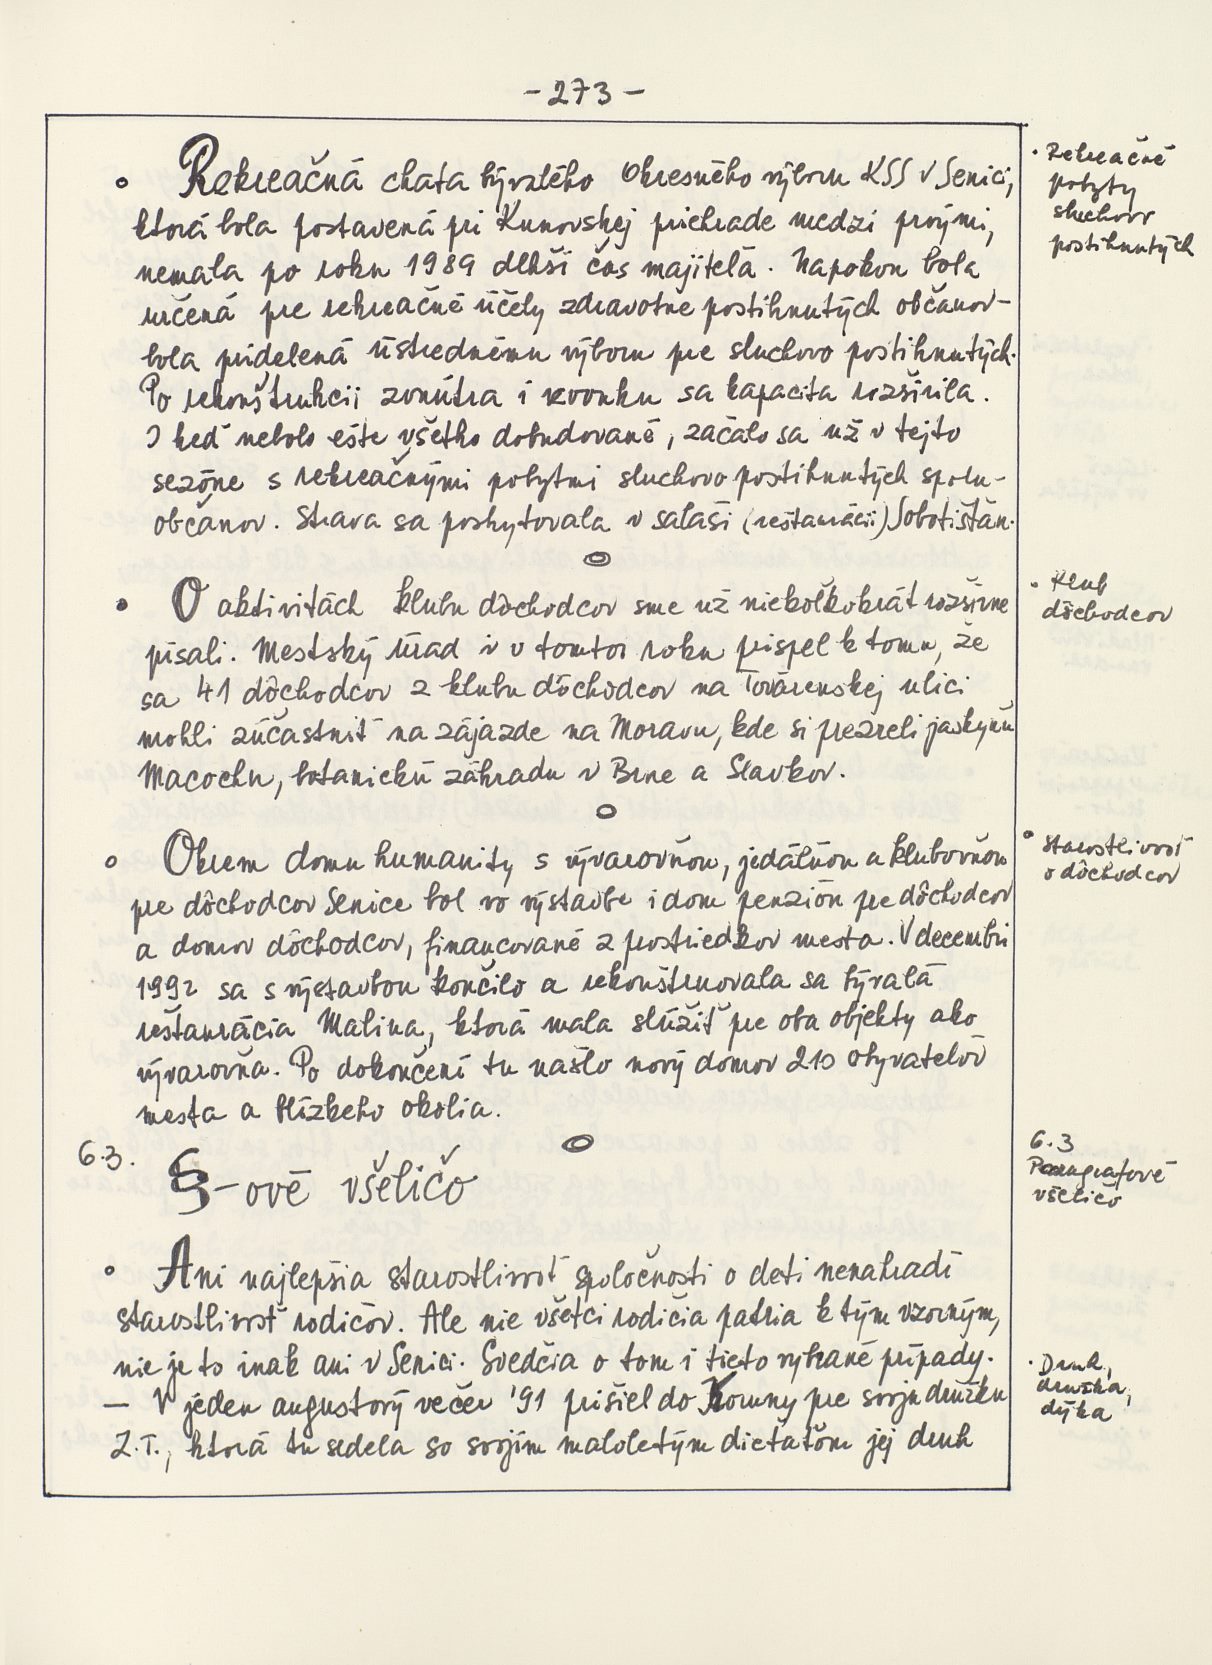 - 273 -
• Rekreačná chata bývalého Okresného výboru KSS v Senici,
ktorá bola postavená pri Kunovskej priehrade medzi prvými,
nemala po roku 1989 dlhší čas majiteľa. Napokon bola
určená pre rekreačné účely zdravotne postihnutých občanov-
bola pridelená ústrednému výboru pre sluchovo postihnutých.
Po rekonštrukcii zvnútra i zvonku sa kapacita rozšírila.
I keď nebolo ešte všetko dobudované, začalo sa už v tejto
sezóne s rekreačnými pobytmi sluchovo postihnutých spolu-
občanov. Strava sa poskytovala v salaši (reštaurácii) Sobotišťan.
• Rekreačné
pobyty
sluchovo
postihnutých
• O aktivitách klubu dôchodcov sme už niekoľkokrát rozšírne
písali. Mestský úrad i v tomto roku prispel k tomu, že
sa 41 dôchodcov z klubu dôchodcov na Továrenskej ulici
mohli zúčastniť na zájazde na Moravu, kde si prezreli jaskyňu
Macochu, botanickú záhradu v Brne a Slavkov.
• Klub
dôchodcov
• Okrem domu humanity s vývarovňou, jedálňou a klubovňou
pre dôchodcov Senice bol vo výstavbe i dom penzión pre dôchodcov
a domov dôchodcov, financované z prostriedkov mesta. V decembri
1992 sa s výstavbou končilo a rekonštruovala sa bývalá
reštaurácia Malina, ktorá mala slúžiť pre oba objekty ako
vývarovňa. Po dokončení tu našlo nový domov 210 obyvateľov
mesta a blízkeho okolia.
• Starostlivosť
o dôchodcov
6.3. §-ové všeličo
6.3
Paragrafové
všeličo
• Ani najlepšia starostlivosť spoločnosti o deti nenahradí
starostlivosť rodičov. Ale nie všetci rodičia patria k tým vzorným,
nie je to inak ani v Senici. Svedčia o tom i tieto vybrané prípady.
— V jeden augustový večer '91 prišiel do Koruny pre svoju družku
Z.T., ktorá tu sedela so svojím maloletým dieťaťom jej druh
• Druh,
družka,
dýka